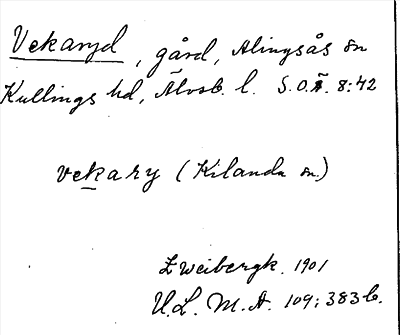 Vekaryd, gård, Alingsås sn
Kullings hd, Älvsb. l. S.O.Ä. 8:42
vekary (Kilanda sn.)
E Weibergk. 1901
U.L.M.A. 109:383 b.